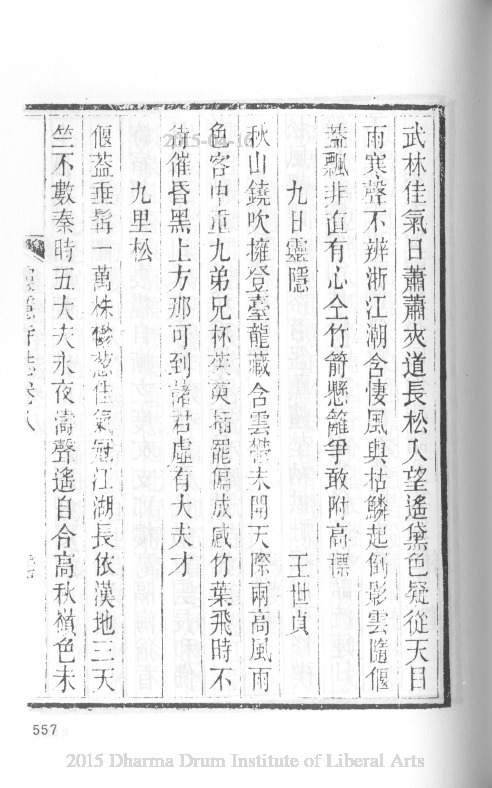 武林佳氣日蕭蕭夾道長松入望遙黛色疑從天目
雨寒聲不辨浙江潮含悽風與枯鱗起倒影雲隨偃
蓋飄非直有心仝竹箭懸籬爭敢附高標
九日靈隱 王世貞
秋山鐃吹擁登臺龍藏含雲鬱未開天際兩高風雨
色客中重九弟兄杯茱萸插罷偏成感竹葉飛時不
待催昏黑上方那可到諸君虛有大夫才
九里松
偃葢垂髯一萬株鬱葱佳氣冠江湖長依漢地三天
竺不數秦時五大夫永夜濤聲遙自合高秋嶺色未
557
2015-04-16
2015 Dharma Drum Institute of Liberal Arts